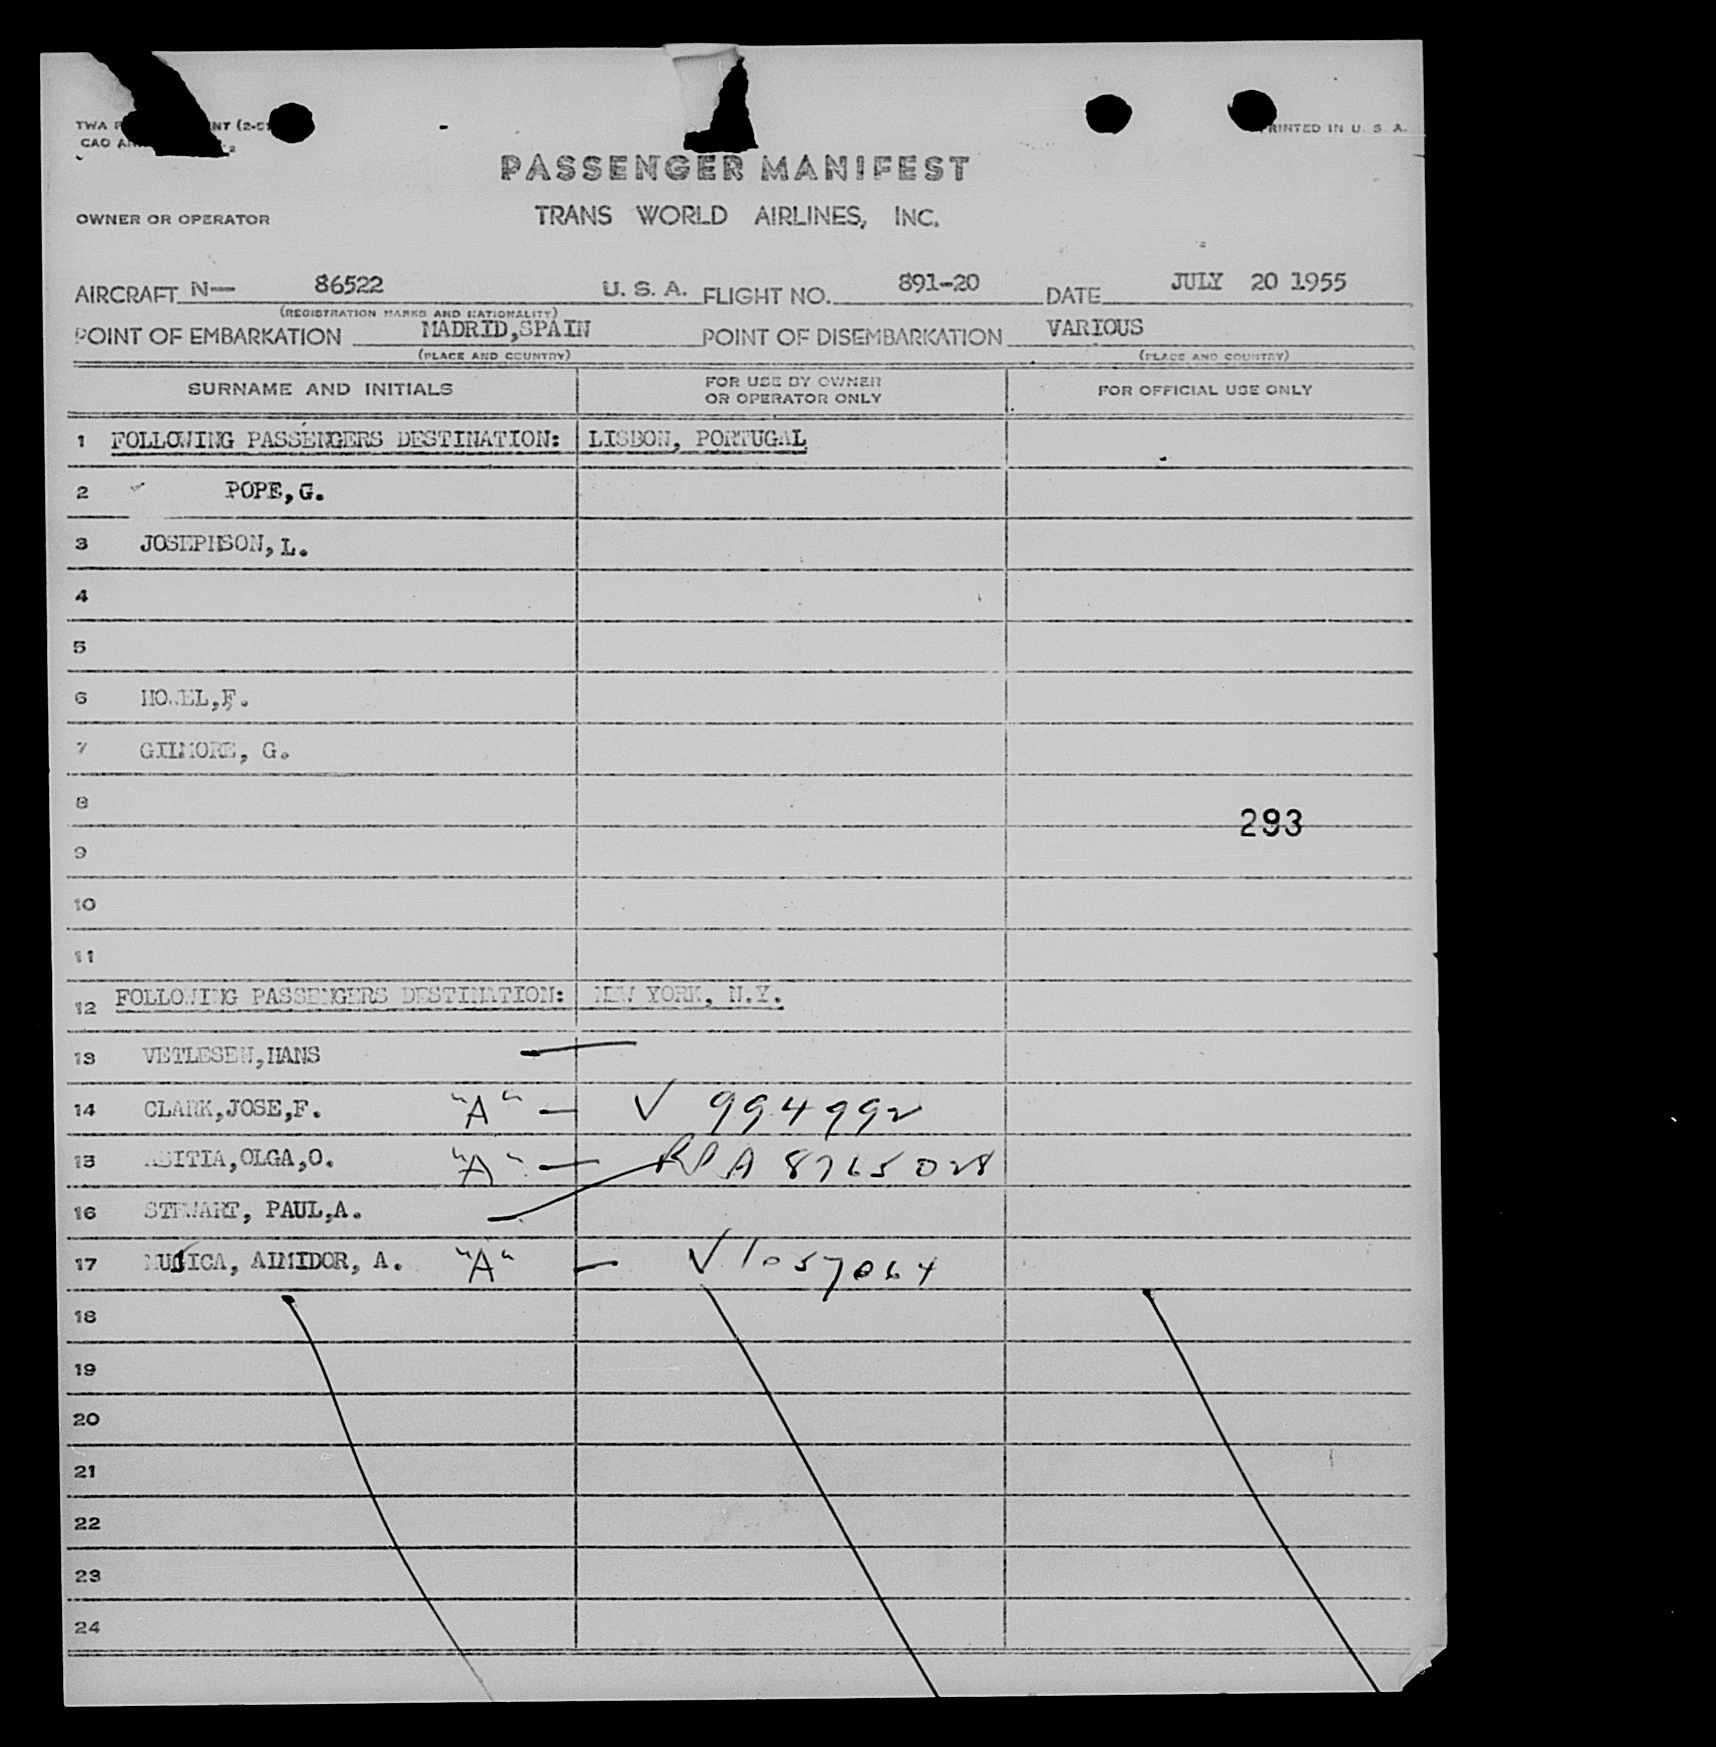 TWA
PRINTED IN U. S. A.
PASSENGER MANIFEST
OWNER OR OPERATOR TRANS WORLD AIRLINES, INC.
AIRCRAFT N— 86522 U. S. A. FLIGHT NO. 891-20 DATE JULY 20 1955
(REGISTRATION MARKS AND NATIONALITY)
POINT OF EMBARKATION MADRID,SPAIN POINT OF DISEMBARKATION VARIOUS
(PLACE AND COUNTRY) (PLACE AND COUNTRY)
SURNAME AND INITIALS FOR USE BY OWNER OR OPERATOR ONLY FOR OFFICIAL USE ONLY
1 FOLLOWING PASSENGERS DESTINATION: LISBON, PORTUGAL
2 POPE,G.
3 JOSEPHSON,L.
4
5
6
7 GILMORE, G.
8
293
9
10
11
12 FOLLOWING PASSENGERS DESTINATION: NEW YORK, N.Y.
13 VETLESEN,HANS
14 CLARK,JOSE,F. "A" — V 994992
15 OLGA,O. "A" —
16 STEWART, PAUL,A.
17 MUJICA, ALMIDOR, A. "A" — V 1057064
18
19
20
21
22
23
24